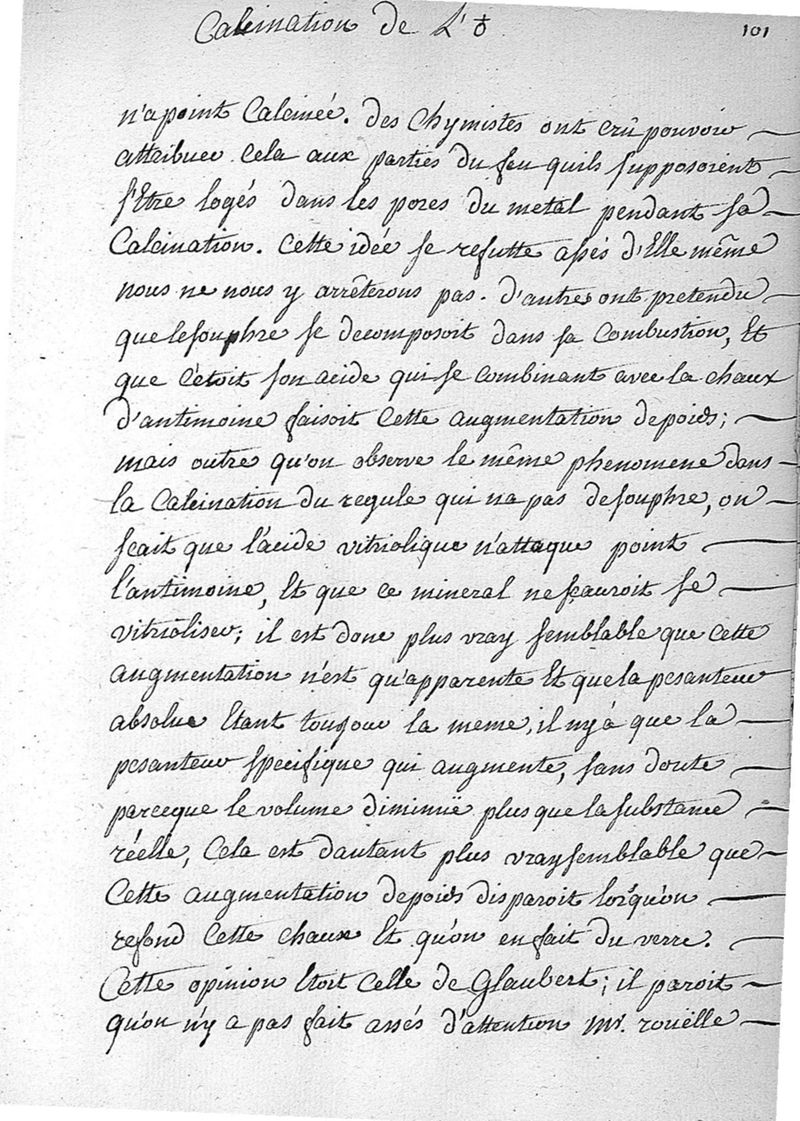 Calcination de L'♁
101
n'a point Calcinée. des Chymistes ont crû pouvoir
attribuer cela aux parties du feu quils supposoient
s'Etre logés dans les pores du metal pendant sa
Calcination. Cette idée se refutte assés d'Elle même
nous ne nous y arrêterons pas. d'autres ont pretendu
que le souphre se decomposoit dans sa Combustion, Et
que C'étoit son acide qui se combinant avec la chaux
d'antimoine faisoit Cette augmentation de poids;
mais outre qu'on observe le même phenomene dans
la Calcination du regule qui na pas de souphre, on
sçait que l'acide vitriolique n'attaque point
l'antimoine, Et que ce mineral ne sçauroit se
vitrioliser; il est donc plus vray semblable que cette
augmentation n'est qu'apparente Et que la pesanteur
absolue Etant toujour la meme, il ny à que la
pesanteur specifique qui augmente, sans doute
parceque le volume diminuë plus que la substance
réelle, Cela est dautant plus vraysemblable que
Cette augmentation de poids disparoit lorsqu'on
refond Cette chaux Et qu'on en fait du verre.
Cette opinion Etoit Celle de Glaubert; il paroit
qu'on n'y a pas fait assés d'attention Mr. rouëlle